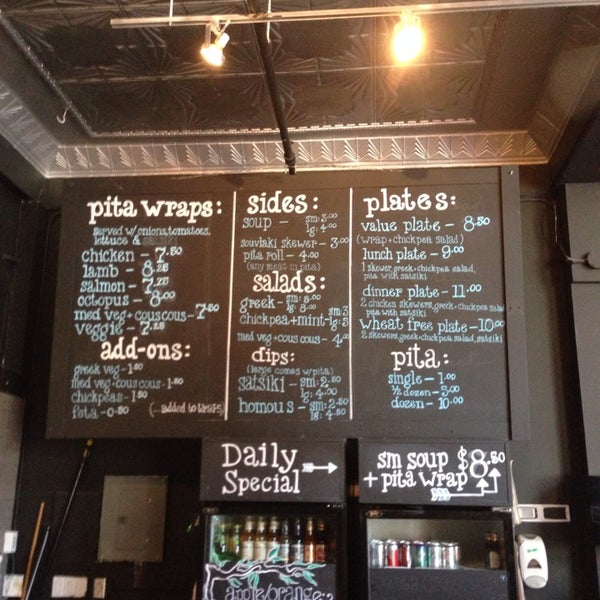 pita wraps:
served w/onions, tomatoes,
lettuce &
chicken - 7.50
lamb - 8.25
salmon - 7.25
octopus - 8.00
med veg + couscous - 7.50
veggie - 7.25
add-ons:
greek veg - 1.00
med veg + couscous - 1.50
chickpeas - 1.00
feta - 0.50 (...added to wraps)
sides:
soup - sm: 3.00
lg: 4.00
souvlaki skewer - 3.00
pita roll - 4.00
(any meat in pita)
salads:
greek - sm:
lg: 8.00
chickpea + mint - sm: 3
lg: 5
med veg + couscous - 4.00
dips:
(large comes w/pita)
satsiki - sm: 2.50
lg: 4.50
homous - sm: 2.50
lg: 4.50
plates:
value plate - 8.50
(wrap + chickpea salad)
lunch plate - 9.00
1 skewer, greek + chickpea salad,
pita with satsiki
dinner plate - 11.00
2 chicken skewers, greek + chickpea salad
pita with satsiki
wheat free plate - 10.00
2 skewers, greek + chickpea salad, satsiki
pita:
single - 1.00
1/2 dozen - 5.00
dozen - 10.00
Daily
Special
sm soup $8.50
+ pita wrap
apple/orange